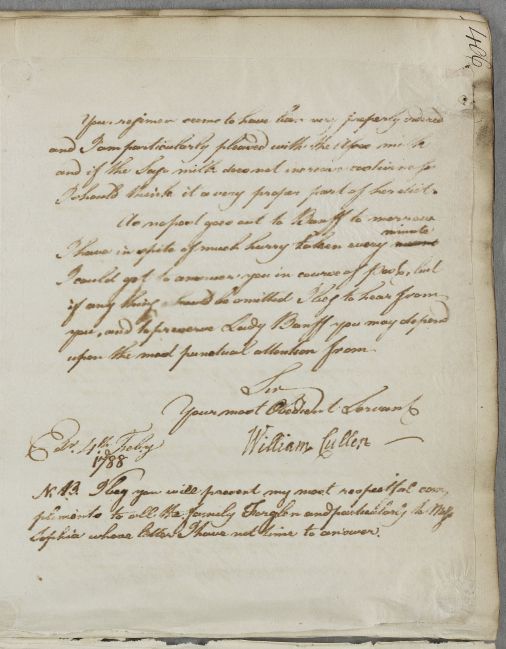 406
Your regimen seems to have been very properly ordered
and I am particularly pleased with the Asses milk
and if the Sago milk does not increase costiveness
I should think it a very proper part of her diet.
As no post goes out to Banff to morrow
I have in spite of much hurry taken every minute
I could get to answer you in course of post, but
if any thing should be omitted I beg to hear from
you, and to preserve Lady Banff you may depend
upon the most punctual attention from
Sir
Your most Obedient Servant
William Cullen
Edr. 4th Feby
1788
N.B. I beg you will present my most respectful com,
pliments to all the family Forglen and particularly to Miss
Sophia whose letter I have not time to answer.